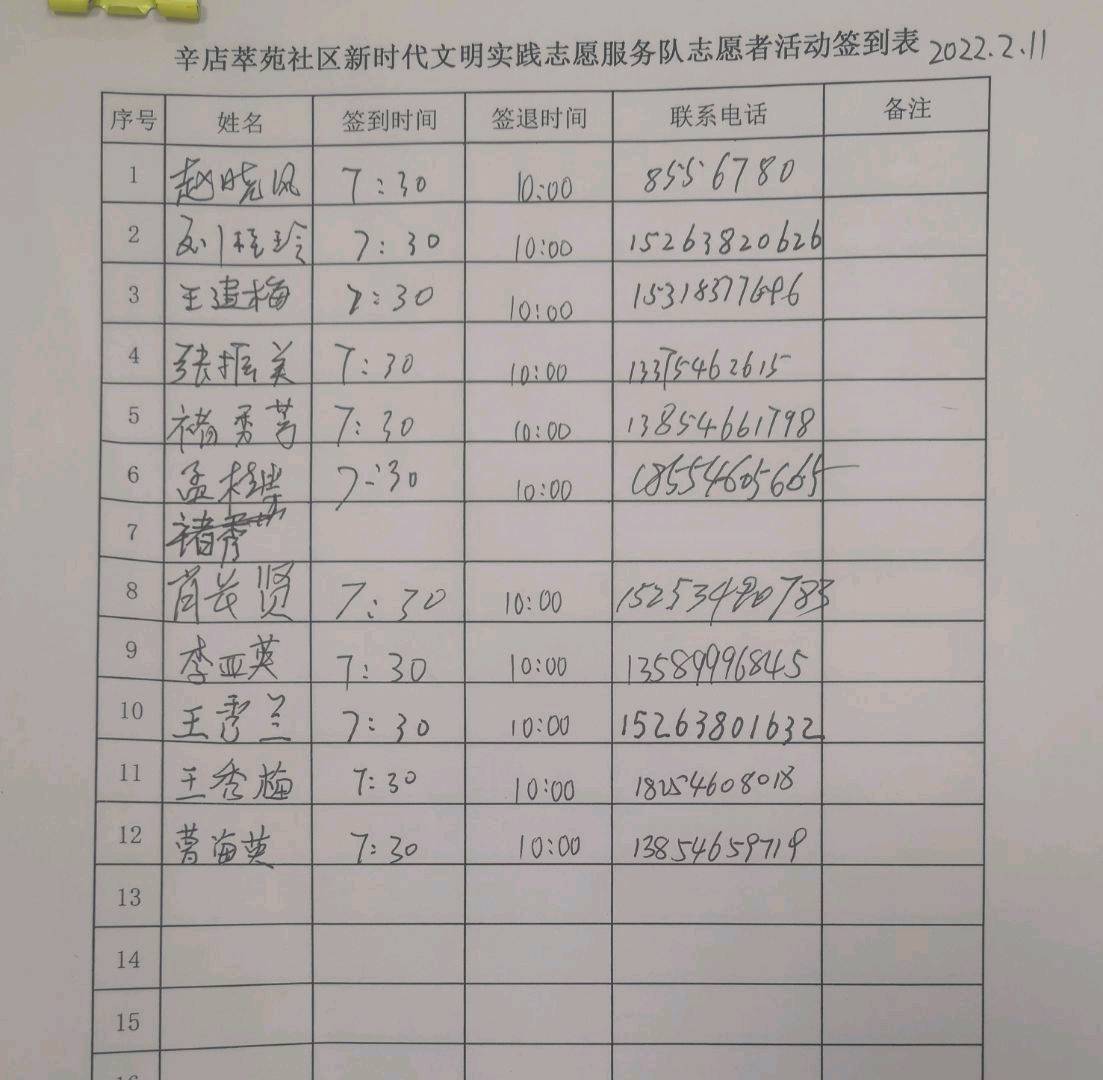 辛店萃苑社区新时代文明实践志愿服务队志愿者活动签到表 2022.2.11
序号 姓名 签到时间 签退时间 联系电话 备注
1 赵晓风 7:30 10:00 8556780
2 刘桂珍 7:30 10:00 15263820626
3 王建梅 7:30 10:00 15318377696
4 张振美 7:30 10:00 13375462615
5 褚秀芳 7:30 10:00 13854661798
6 孟桂 7:30 10:00 18554605665
7 褚秀
8 肖长贤 7:30 10:00 15253490783
9 李亚英 7:30 10:00 13589996845
10 王秀兰 7:30 10:00 15263801632
11 王秀梅 7:30 10:00 18254608018
12 曹海英 7:30 10:00 13854659719
13
14
15